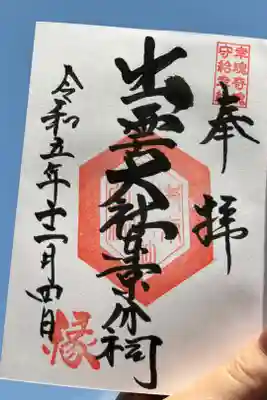 幸魂奇魂
守給幸給
奉拝
出雲大社東京分祠
令和五年十一月四日
縁